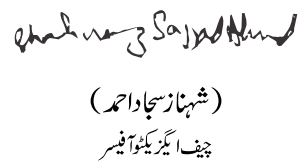 Shahnaz Sajjad Ahmad
(شہناز سجاد احمد)
چیف ایگزیکٹو آفیسر